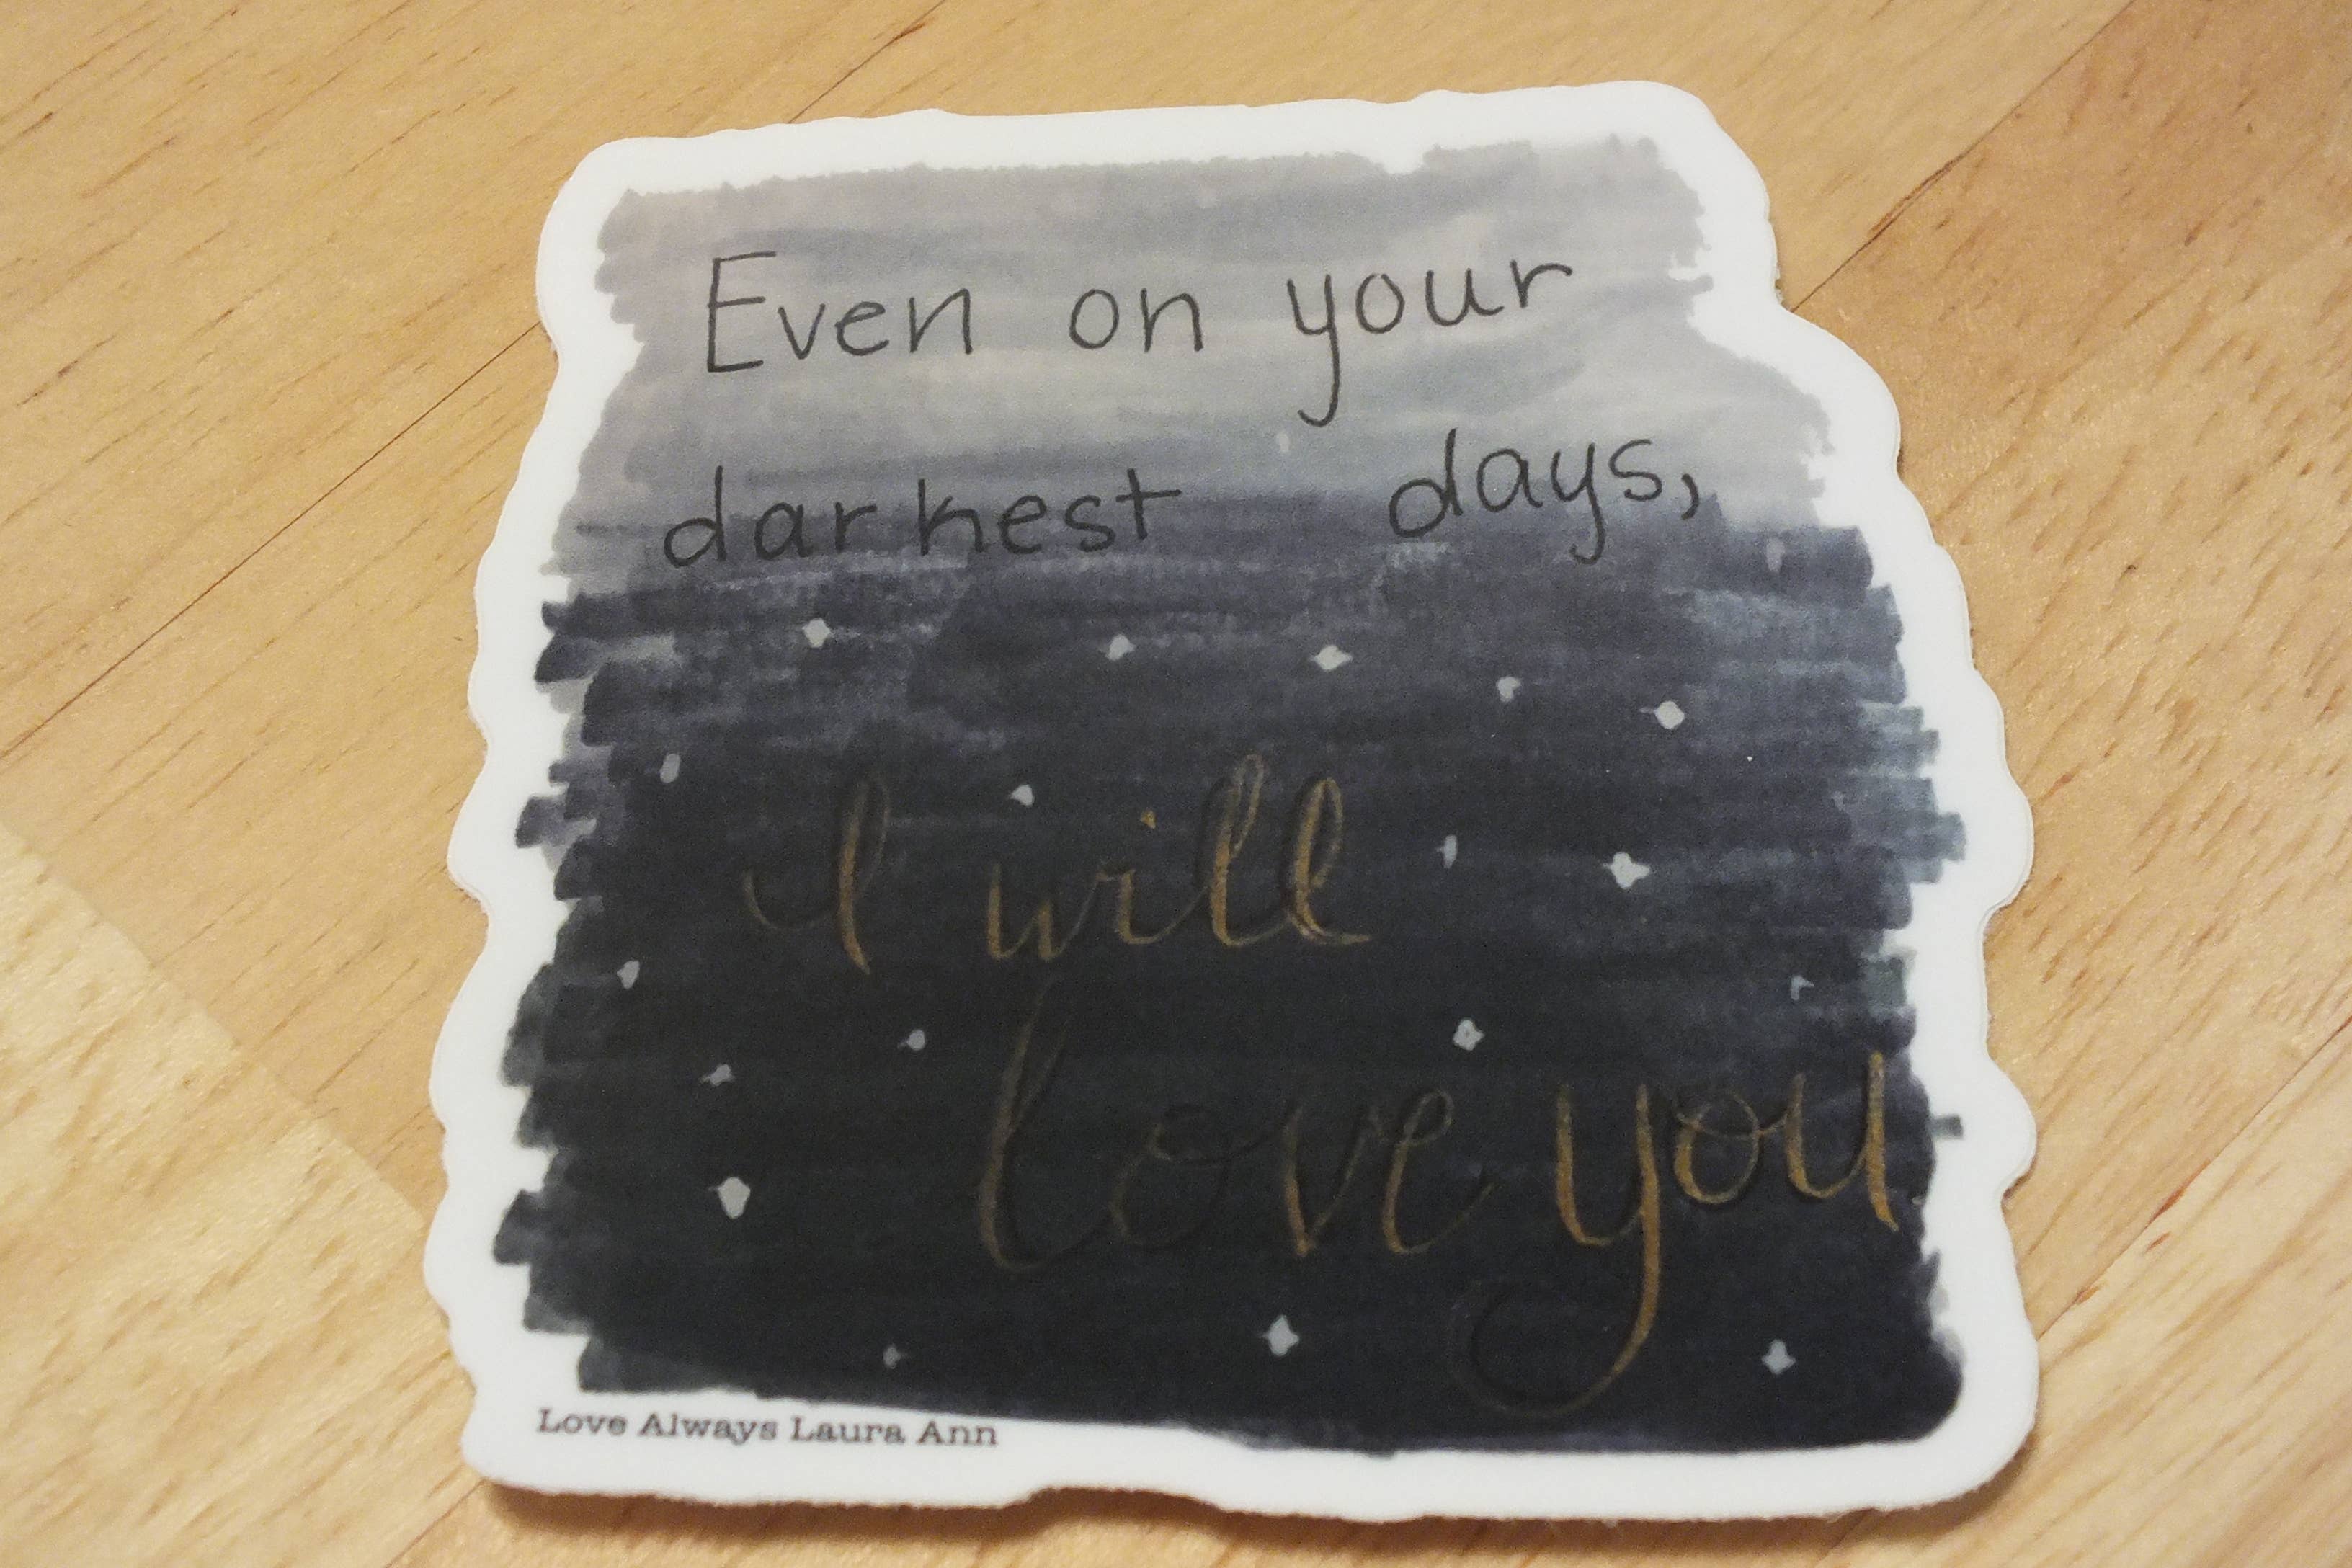 Even on your
darkest days,
I will
love you
Love Always Laura Ann